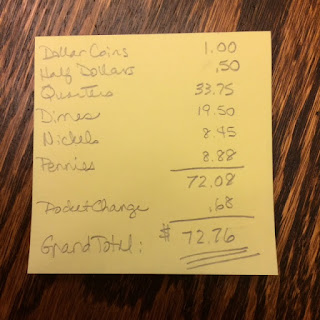 Dollar Coins 1.00
Half Dollars .50
Quarters 33.75
Dimes 19.50
Nickels 8.45
Pennies 8.88
72.08
Pocket Change .68
Grand Total: $ 72.76